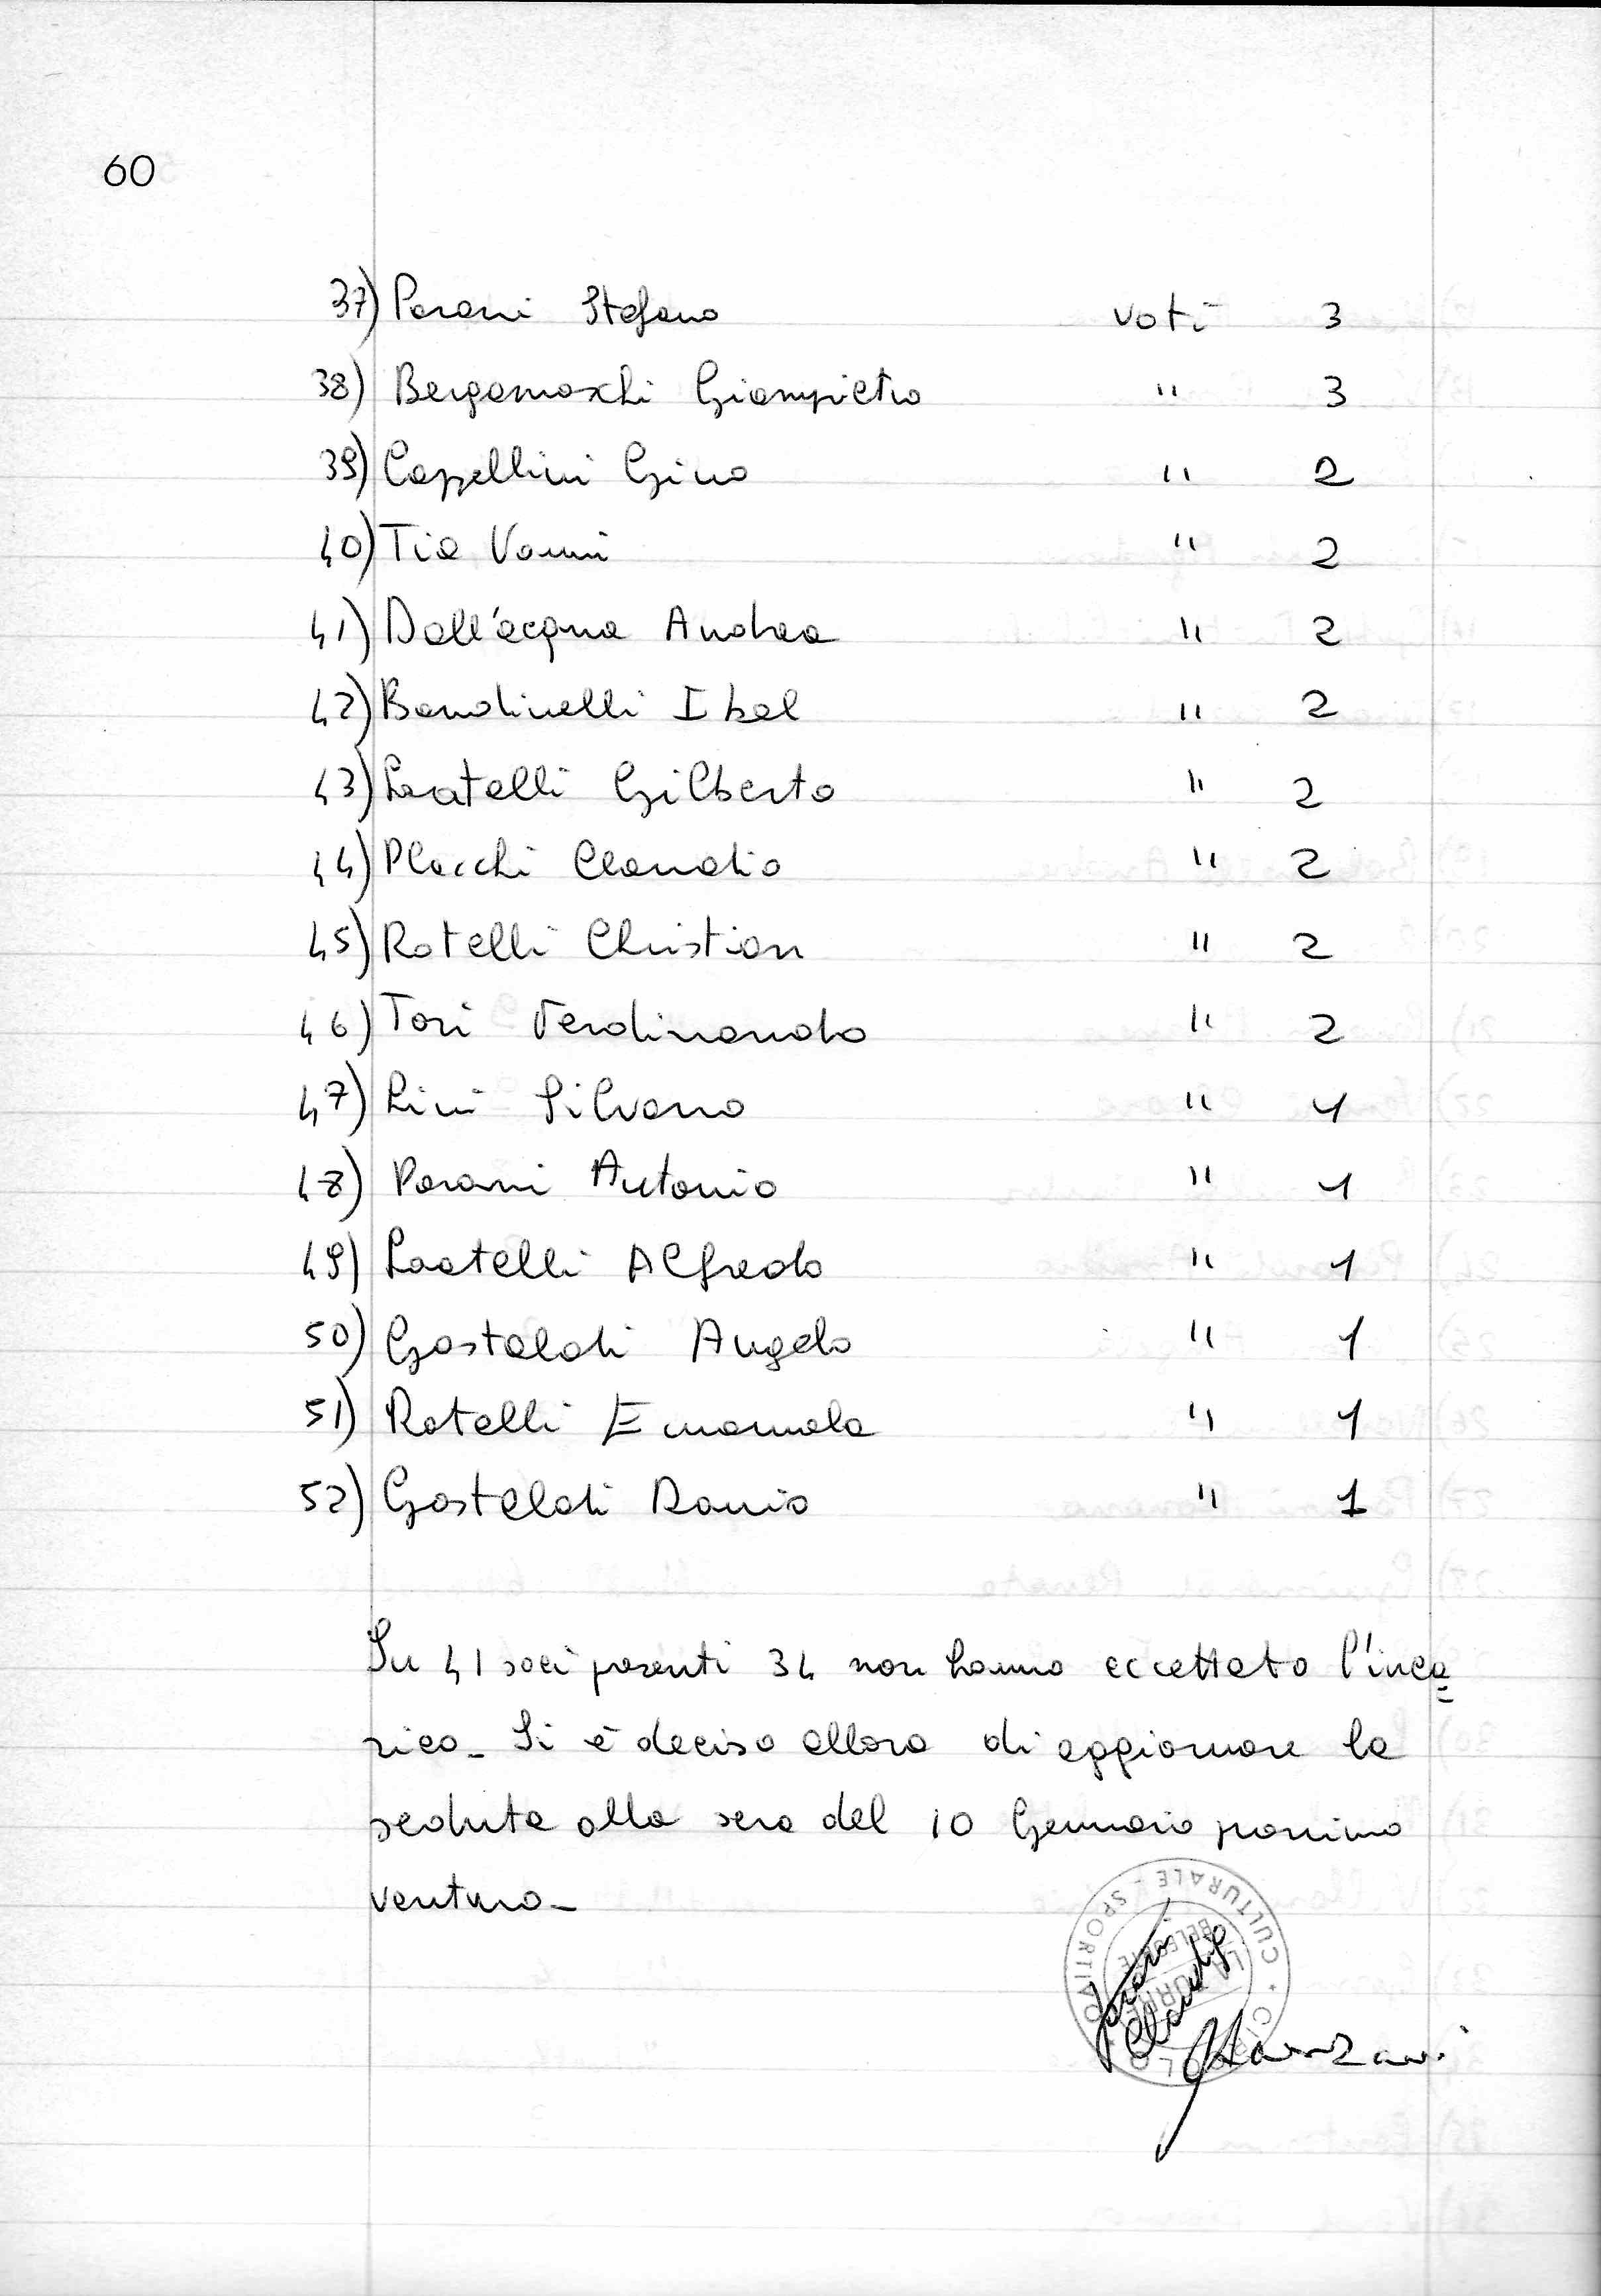 60
37) Parani Stefano voti 3
38) Bergamaschi Giampietro " 3
39) Cappellini Gino " 2
40) Tia Vanni " 2
41) Dall'acqua Andrea " 2
42) Bandinelli Ibal " 2
43) Locatelli Gilberto " 2
44) Placchi Claudio " 2
45) Rotelli Christian " 2
46) Tori Ferdinando " 2
47) Lini Silvano " 1
48) Parani Antonio " 1
49) Locatelli Alfredo " 1
50) Gastaldi Angelo " 1
51) Rotelli Emanuela " 1
52) Gastaldi Dania " 1
Su 41 soci presenti 34 non hanno accettato l'inca=
rico_ Si è deciso allora di aggiornare la
seduta alla sera del 10 Gennaio prossimo
venturo_
CIRCOLO * CULTURALE - SPORTIVO
LA TORRE
BELFORTE
Claudio